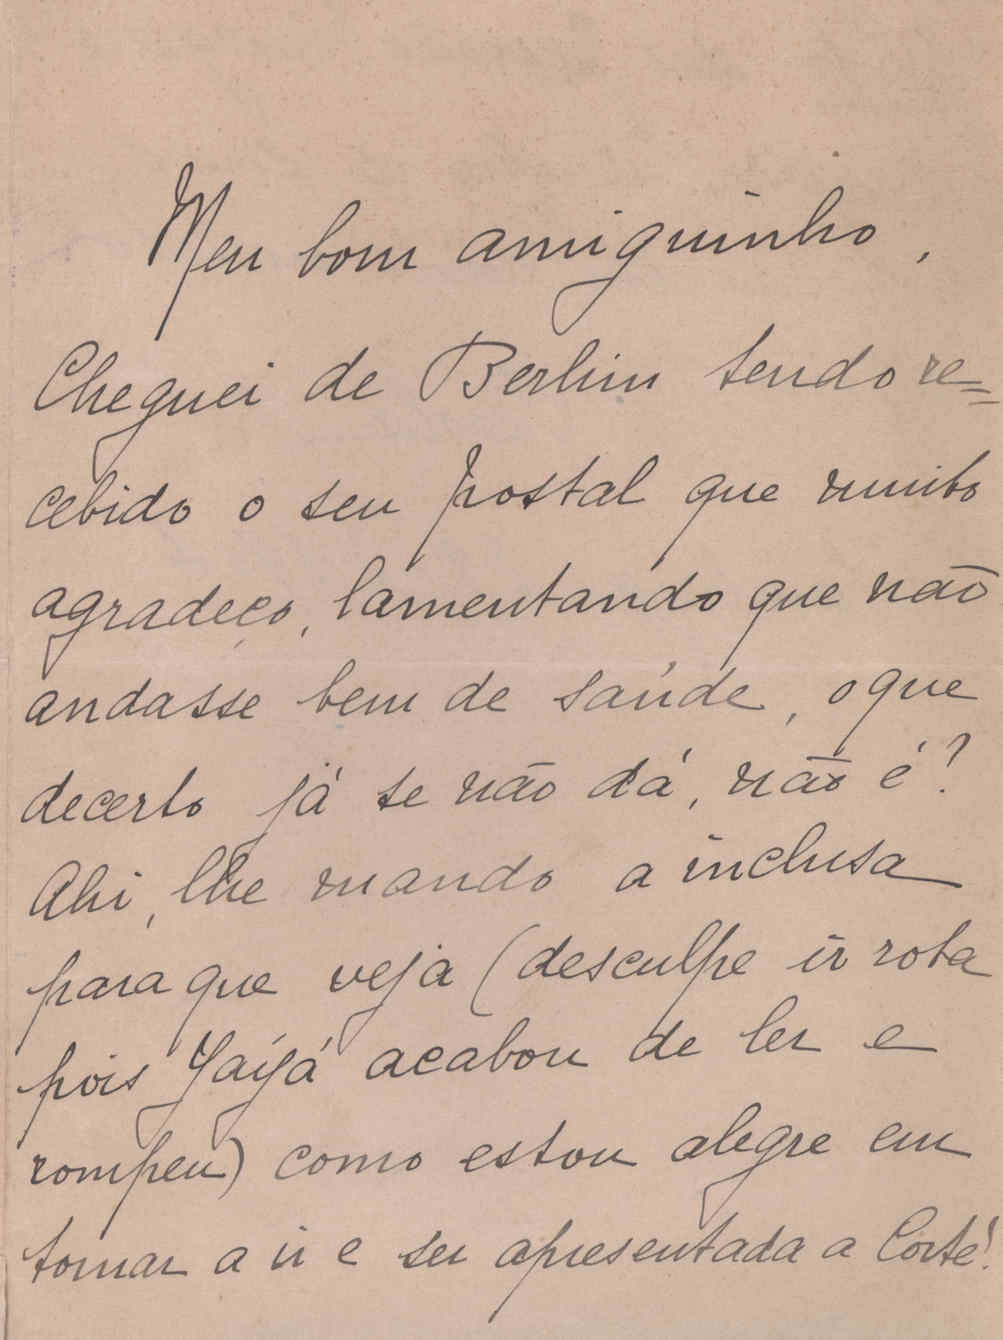 Meu bom amiguinho,
Cheguei de Berlim tendo re=
cebido o seu postal que muito
agradeço, lamentando que não
andasse bem de saúde, o que
decerto já se não dá, não é?
Ahi, lhe mando a inclusa
para que veja (desculpe ir rota
pois Yáyá acabou de ler e
rompeu) como estou alegre em
tornar a ir e ser apresentada a Corte!